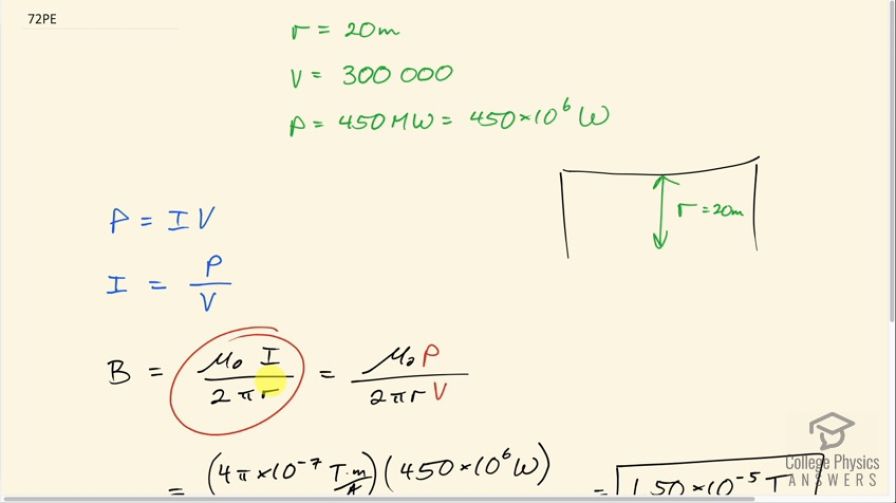 72PE
r = 20m
V = 300 000
P = 450 MW = 450×10⁶ W
r = 20m
P = I V
I = P/V
B = μ₀ I / 2πr = μ₀ P / 2πr V
= (4π×10⁻⁷ T·m/A)(450×10⁶ W) = 1.50×10⁻⁵ T
College Physics
ANSWERS